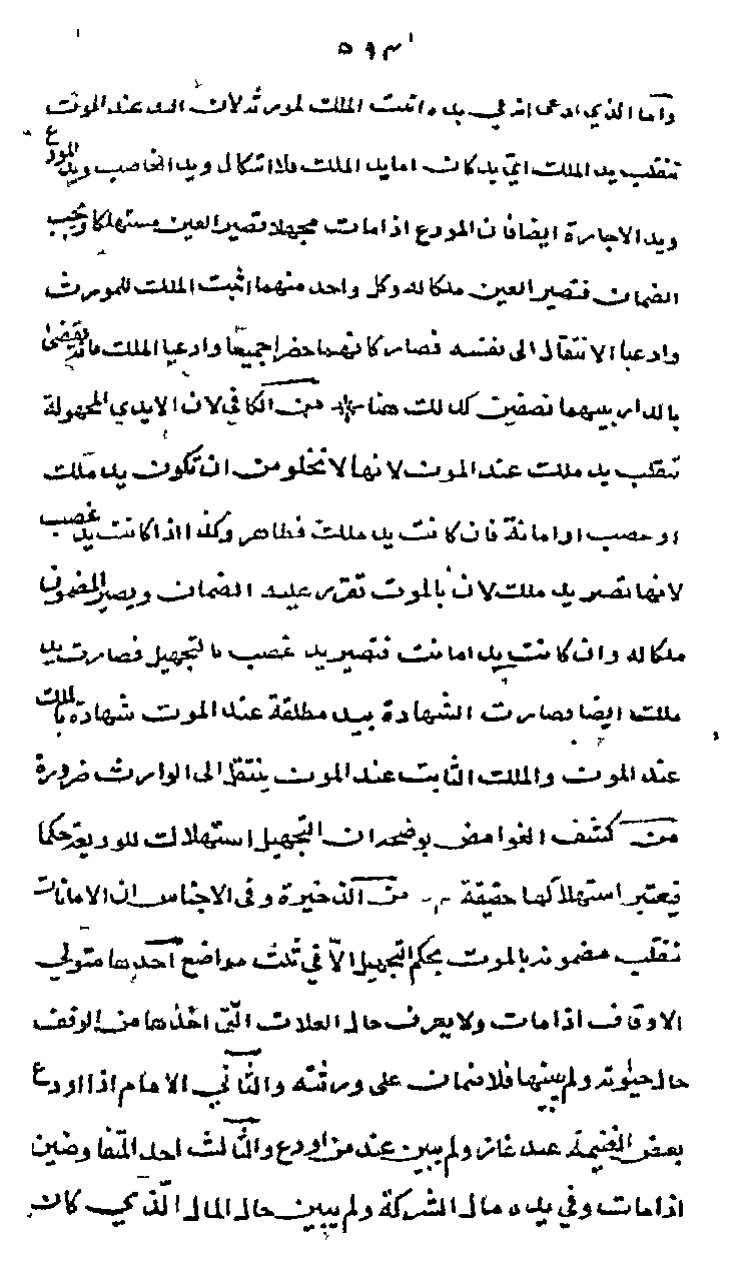 ٥٩٣
واما الذي ادعى انه في يده اثبت الملك لمورثه لان اليد عند الموت
تنقلب يد الملك اي يد كان اما يد الملك فلا اشكال ويد الغاصب ويد المودع
ويد الاجارة ايضا فان المودع اذا مات مجهلا تصير العين مستهلكا ويجب
الضمان فتصير العين ملكا له وكل واحد منهما اثبت الملك للمورث
وادعيا الانتقال الى نفسه فصار كانهما حضرا جميعا وادعيا الملك يقضى
بالدار بينهما نصفين كذلك هنا من الكافي لان الايدي المجهولة
تنقلب يد ملك عند الموت لانها لا تخلو من ان تكون يد ملك
او غصب او امانة فان كانت يد ملك فظاهر وكذا اذا كانت يد غصب
لانها تصير يد ملك لان بالموت تقرر عليه الضمان ويصير المضمون
ملكا له وان كانت يد امانت فتصير يد غصب بالتجهيل فصارت يد
ملك ايضا فصارت الشهادة بيد مطلقة عند الموت شهادة بالملك
عند الموت والملك الثابت عند الموت ينتقل الى الوارث ضرورة
من كشف الغوامض يوضحه ان التجهيل استهلاك للوديعة حكما
فيعتبر استهلاكها حقيقة م من الذخيرة وفي الاجناس ان الامانات
تنقلب مضمونه بالموت بحكم التجهيل الا في ثلث مواضع احدها متولي
الاوقاف اذا مات ولا يعرف حال الغلات التي اخذها من الوقف
حال حيوته ولم يبينها فلا ضمان على ورثته والثاني الامام اذا اودع
بعض الغنيمة عند غاز ولم يبين عند من اودع والثالث احد المتفاوضين
اذا مات وفي يده مال الشركة ولم يبين حال المال الذي كان